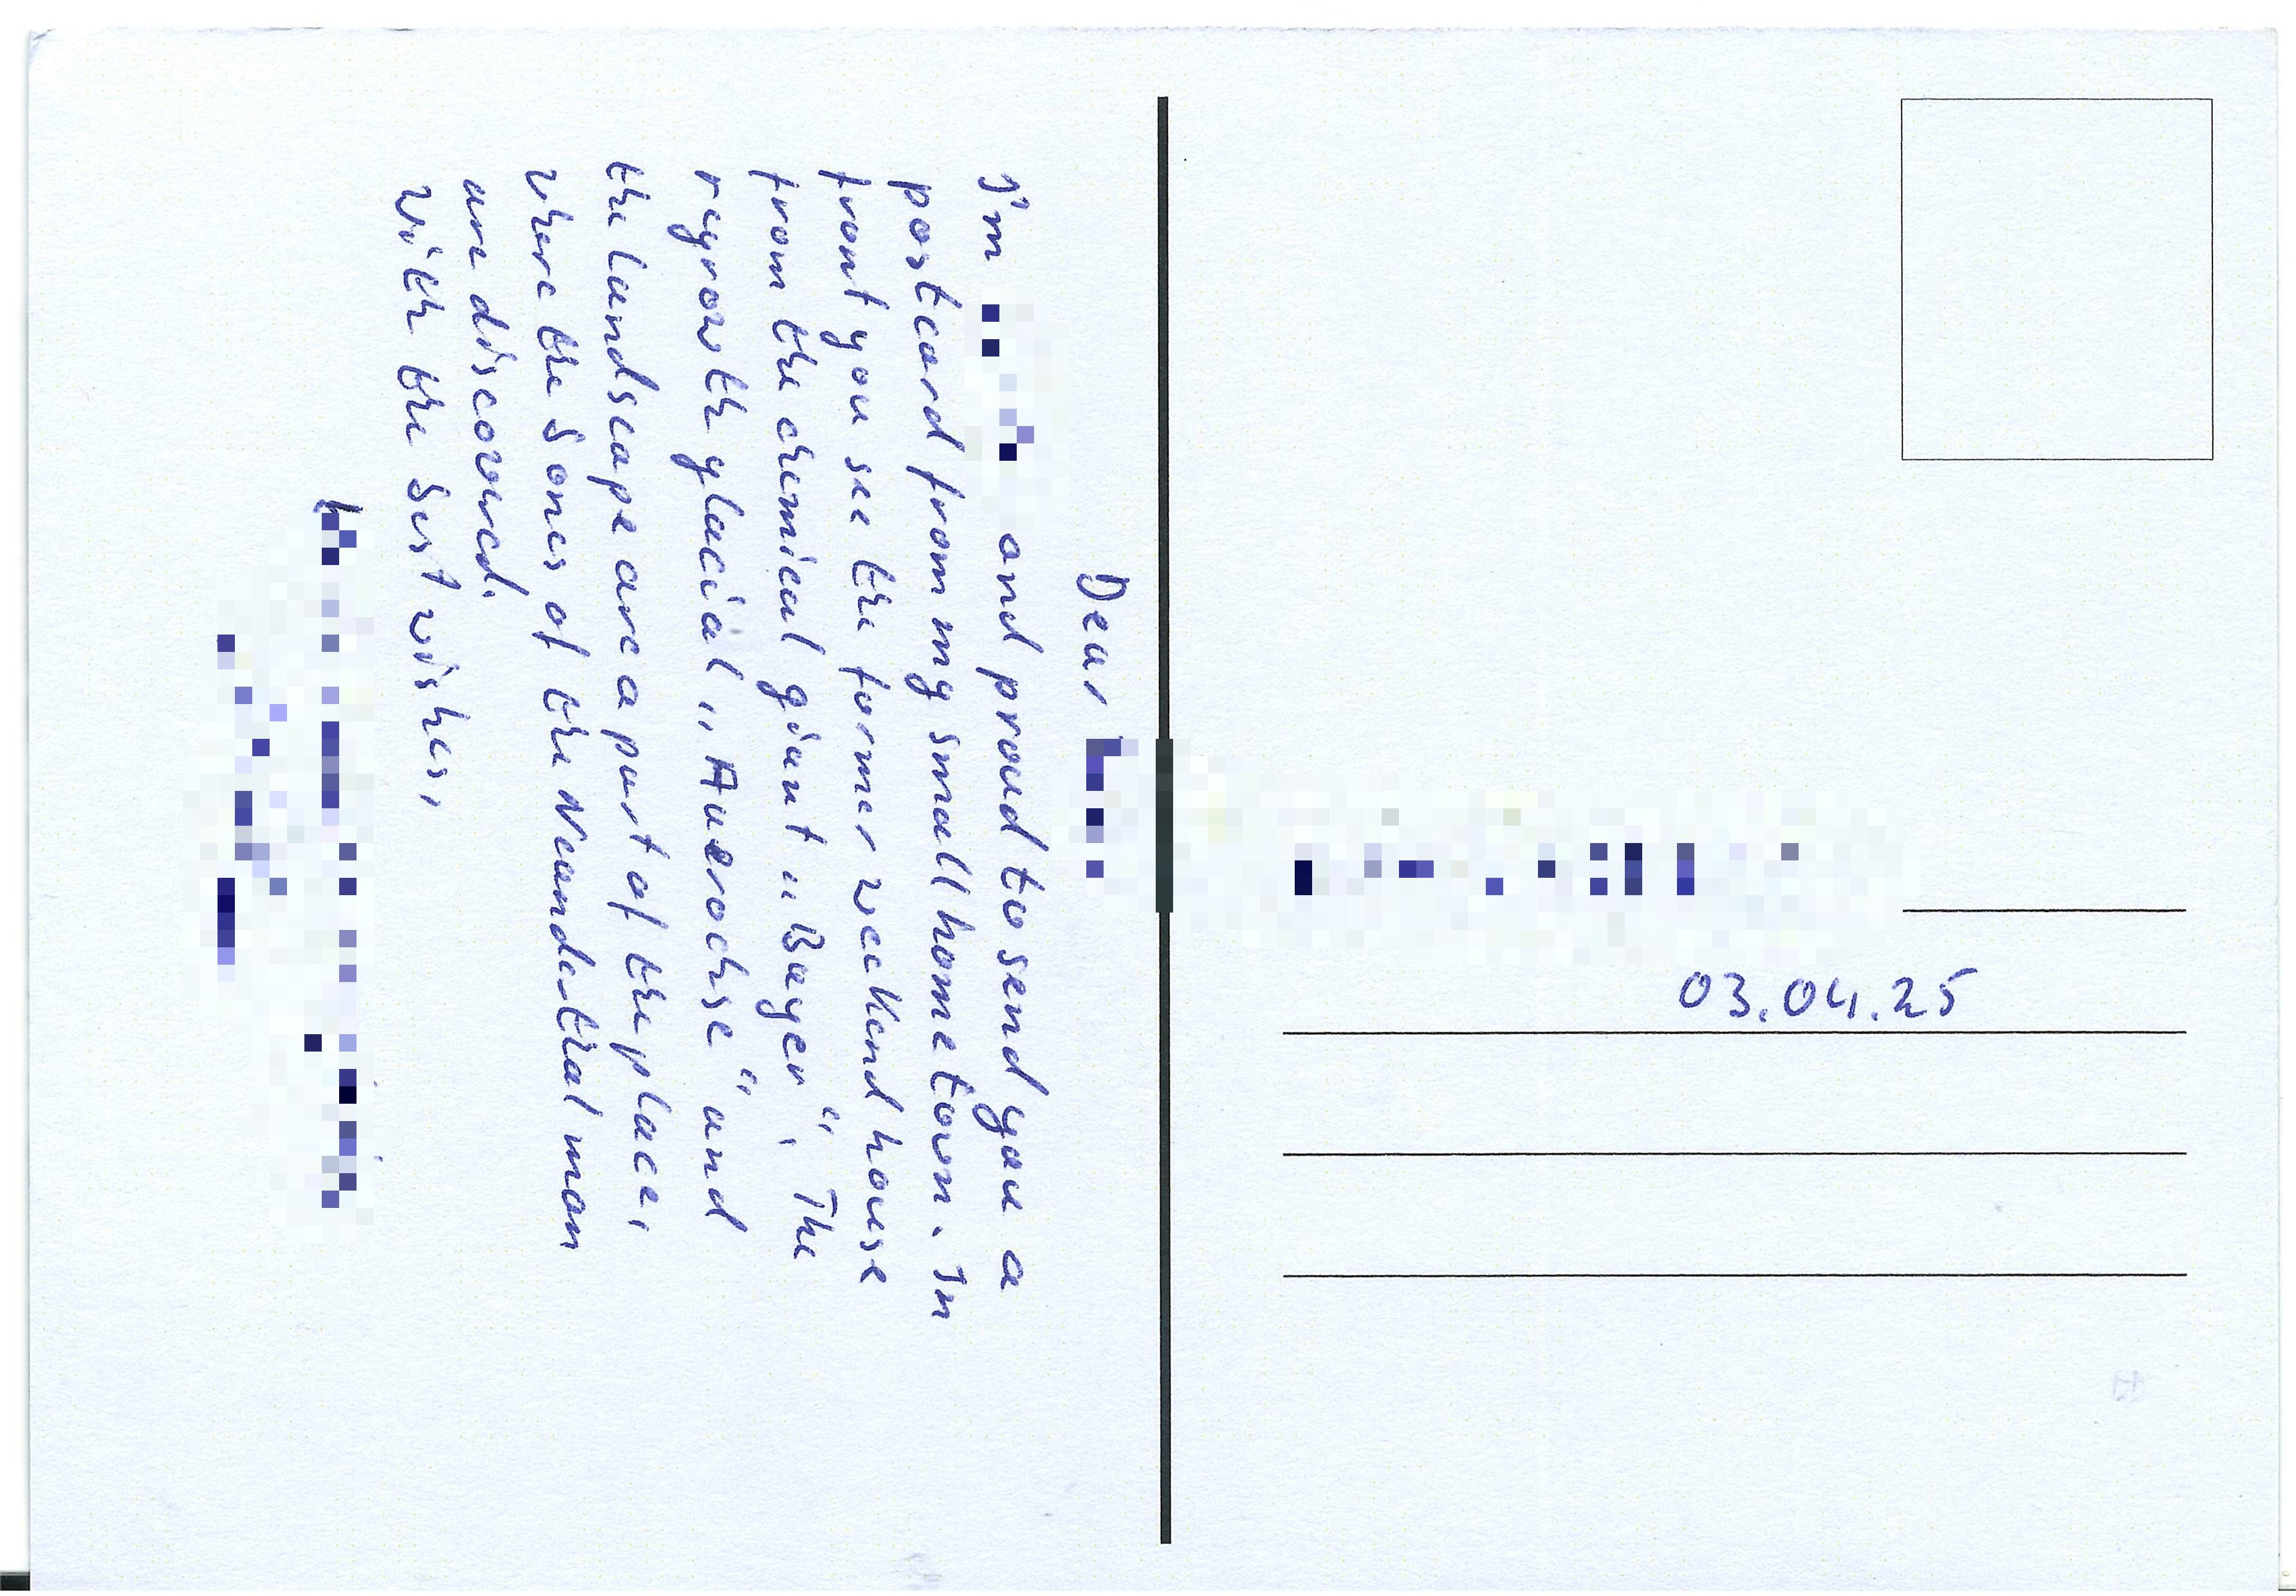 Dear
I'm and proud to send you a
postcard from my small hometown. In
front you see the former weekend house
from the chemical giant "Bayer". The
regrowth glacial "Auerochse" and
the landscape are a part of the place,
where the bones of the Neandertal man
are discovered.
With the best wishes,
03.04.25